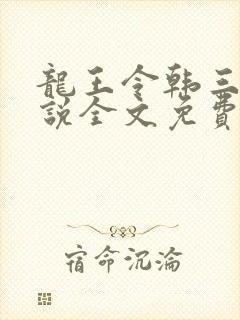 龍王令韩三
說全文免費
宿命沉淪